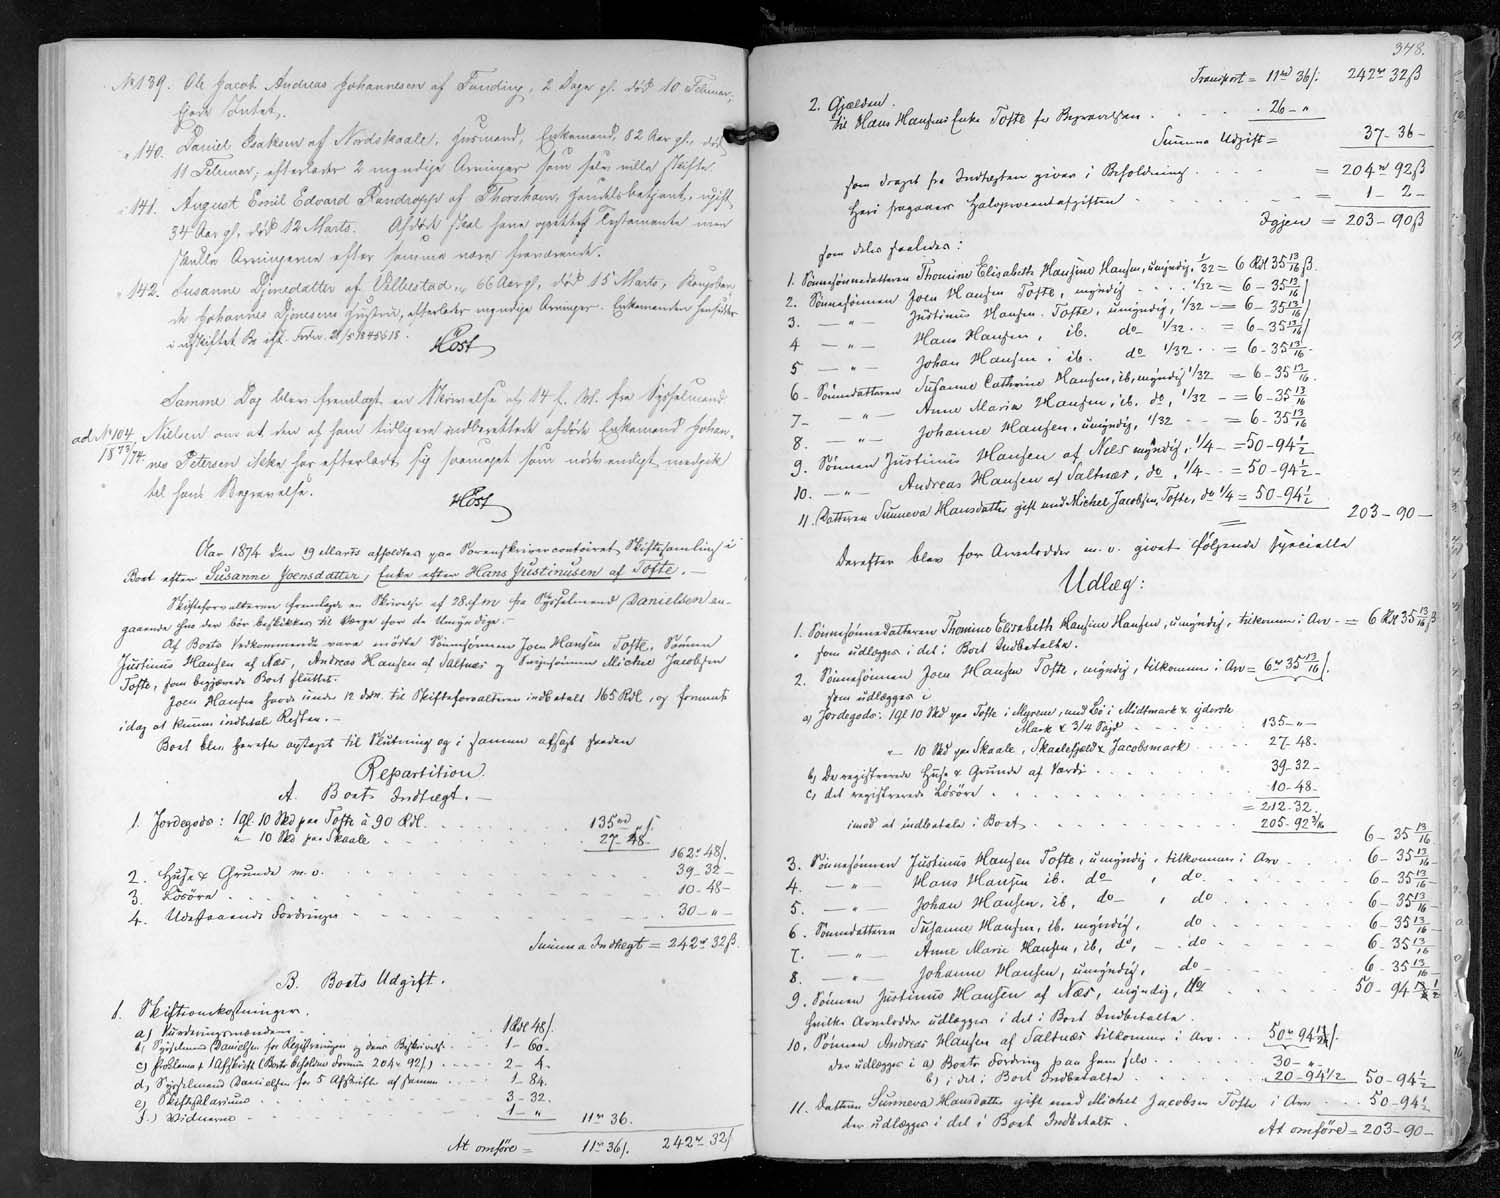 No 139. Ole Jacob Andreas Johannesen af Funding, 2 Dage gl. død 10 Februar,
Ejede Intet.
" 140. Daniel Isaksen af Nordskaale, Huusmand, Enkemand, 82 Aar gl., død
11 Februar, efterlader 2 myndige Arvinger som selv ville skifte.
" 141. August Emil Edvard Randropp af Thorshavn, Handelsbetjent, ugift
34 Aar gl. død 12 Marts. Afdøde skal have oprettet Testamente men
skulle Arvingerne efter samme være fraværende.
" 142. Susanne Djonedatter af Velbestad, 66 Aar gl., død 15 Marts, Kongsbon-
de Johannes Djonesens Hustru, efterlader myndige Arvinger. Enkemanden hensidder
i uskiftet Bo ifl. Frdn. 21/5 1845 § 18.
Høst
Samme Dag blev fremlagt en Skrivelse af 14 f. M. fra Sysselmand
ad No 104 1873/74. Nielsen om at den af ham tidligere indberettede afdøde Enkemand Johan-
nes Petersen ikke har efterladt sig saameget som nødvendigt medgik
til hans Begravelse.
Høst
Aar 1874 den 19 Marts afholdtes paa Sorenskrivercontoiret Skiftesamling i
Boet efter Susanne Joensdatter, Enke efter Hans Justinusen af Tofte. —
Skifteforvalteren fremlagde en Skrivelse af 28. f. M. fra Sysselmand Danielsen an-
gaaende hvo der bør beskikkes til Værge for de Umyndige. —
Af Boets Vedkommende vare mødte Sønnesønnen Joen Hansen Tofte, Sønnen
Justinus Hansen af Næs, Andreas Hansen af Saltnæs og Svigersønnen Michel Jacobsen
Tofte, som begjærede Boet sluttet.
Joen Hansen havde under 12 ds. til Skifteforvalteren indbetalt 165 Rdl, og fremmet
idag at kunne indbetale Resten. —
Boet blev herefter optaget til Slutning og i samme afsagt saadan
Repartition.
A. Boets Indtægt. —
1. Jordegods: 1 gl. 10 Skd paa Tofte à 90 Rdl. 135 rd " ß.
" 10 Skd paa Skaale 27 - 48 -
162 rd 48 ß.
2. Huse & Grunde m. v. 39 - 32 -
3. Løsøre 10 - 48 -
4. Udestaaende Fordringer 30 - " -
Summa Indtægt = 242 rd 32 ß.
B. Boets Udgift.
1. Skifteomkostninger.
a) Vurderingsmændene 1 Rdl 48 ß.
b) Sysselmand Danielsen for Registreringen og dens Beskrivelse 1 - 60 -
c) Proclama & 1 Afskrift (Boets beholdne Formue 204 rd 92 ß.) 2 - 4 -
d) Sysselmand Danielsen for 5 Afskrifter af samme 1 - 84 -
e) Skiftesalarium 3 - 32 -
f.) Vidnerne 1 - " 11 rd 36.
At omføre = 11 rd 36 ß. 242 rd 32 ß
348.
Transport = 11 rd 36 ß. 242 rd 32 ß
2. Gjælden.
til Hans Hansens Enke Tofte for Begravelsen 26 - "
Summa Udgift = 37 - 36 -
som draget fra Indtægten giver i Beholdning = 204 rd 92 ß
Heri fragaaer Halvprocentafgiften = 1 - 2 -
Igjen = 203 - 90 ß
som deles saaledes:
1. Sønnesønnedatteren Thomine Elisabeth Hansine Hansen, umyndig, 1/32 = 6 Rdl 35 13/16 ß.
2. Sønnesønnen Joen Hansen Tofte, myndig 1/32 = 6 - 35 13/16
3. — " — Justinus Hansen Tofte, umyndig, 1/32 - = 6 - 35 13/16
4 — " — Hans Hansen, ib. do 1/32 = 6 - 35 13/16
5 — " — Johan Hansen, ib. do 1/32 = 6 - 35 13/16
6 - Sønnedatteren Susanne Cathrine Hansen, ib, myndig 1/32 = 6 - 35 13/16
7 - — " — Anne Maria Hansen, ib. do, 1/32 - = 6 - 35 13/16
8. — " — Johanne Hansen, umyndig, 1/32 = 6 - 35 13/16
9. Sønnen Justinus Hansen af Næs myndig, 1/4 - = 50 - 94 1/2
10. — " — Andreas Hansen af Saltnæs, do, 1/4 - = 50 - 94 1/2
11. Datteren Sunneva Hansdatter gift med Michel Jacobsen, Tofte, do 1/4 = 50 - 94 1/2 203 - 90 —
Derefter blev for Arvelodder m. v. givet følgende specielle
Udlæg:
1. Sønnesønnedatteren Thomine Elisabeth Hansine Hansen, umyndig, tilkommer i Arv - = 6 Rdl 35 13/16 ß
som udlægges i det i Boet Indbetalte.
2. Sønnesønnen Joen Hansen Tofte, myndig, tilkommer i Arv = 6 rd 35 13/16 ß.
som udlægges i
a) Jordegods: 1 gl 10 Skd paa Tofte i Myrene, med Bø i Midtmark & yderste
Mark & 3/4 135 - " -
" - 10 Skd paa Skaale, Skaalefjeld & Jacobsmark 27 - 48 -
b) De registrerede Huse & Grunde af Værdi 39 - 32 -
c) det registrerede Løsøre 10 - 48 -
= 212 - 32.
imod at indbetale i Boet 205 - 92 3/16 6 - 35 13/16
3. Sønnesønnen Justinus Hansen Tofte, umyndig, tilkommer i Arv 6 - 35 13/16
4. — " — Hans Hansen ib. do , do 6 - 35 13/16
5. — " — Johan Hansen, ib, do , do 6 - 35 13/16
6. Sønnedatteren Susanne Hansen, ib. myndig, do 6 - 35 13/16
7. — " — Anne Marie Hansen, ib, do, - do 6 - 35 13/16
8. — " — Johanne Hansen, umyndig, do 6 - 35 13/16
9. Sønnen Justinus Hansen af Næs, myndig, do 50 - 94 1/2
hvilke Arvelodder udlægges i det i Boet Indbetalte.
10. Sønnen Andreas Hansen af Saltnæs tilkommer i Arv 50 rd 94 1/2 ß.
der udlægges i a) Boets Fordring paa ham selv 30 - " -
b) i det i Boet Indbetalte 20 - 94 1/2 50 - 94 1/2
11. Datteren Sunneva Hansdatter gift med Michel Jacobsen Tofte i Arv 50 - 94 1/2
der udlægges i det i Boet Indbetalte.
At omføre = 203 - 90 -